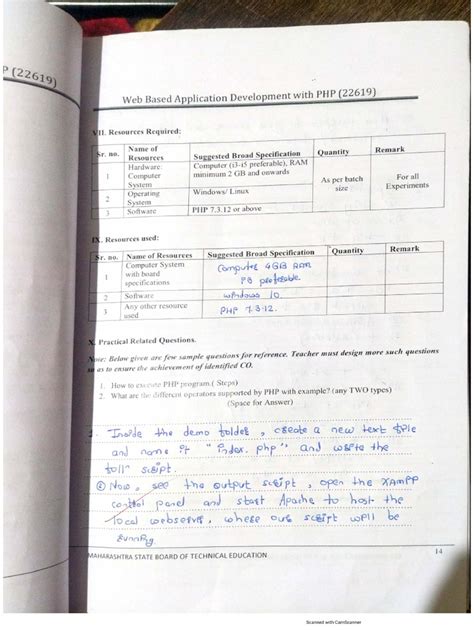 P (22619)
Web Based Application Development with PHP (22619)
VII. Resources Required:
Sr. no. Name of Resources Suggested Broad Specification Quantity Remark
1 Hardware: Computer System Computer (i3-i5 preferable), RAM minimum 2 GB and onwards As per batch size For all Experiments
2 Operating System Windows/ Linux
3 Software PHP 7.3.12 or above
IX. Resources used:
Sr. no. Name of Resources Suggested Broad Specification Quantity Remark
1 Computer System with board specifications Computer 4GB RAM preferable
2 Software windows 10
3 Any other resource used PHP 7.3.12.
X. Practical Related Questions.
Note: Below given are few sample questions for reference. Teacher must design more such questions
so as to ensure the achievement of identified CO.
1. How to execute PHP program.( Steps)
2. What are the different operators supported by PHP with example? (any TWO types)
(Space for Answer)
1. Inside the demo folder, create a new text file
and name it "index.php" and write the
foll" script.
② Now, see the output script, open the XAMPP
control panel and start Apache to host the
local webserver, where our script will be
running.
MAHARASHTRA STATE BOARD OF TECHNICAL EDUCATION 14
Scanned with CamScanner